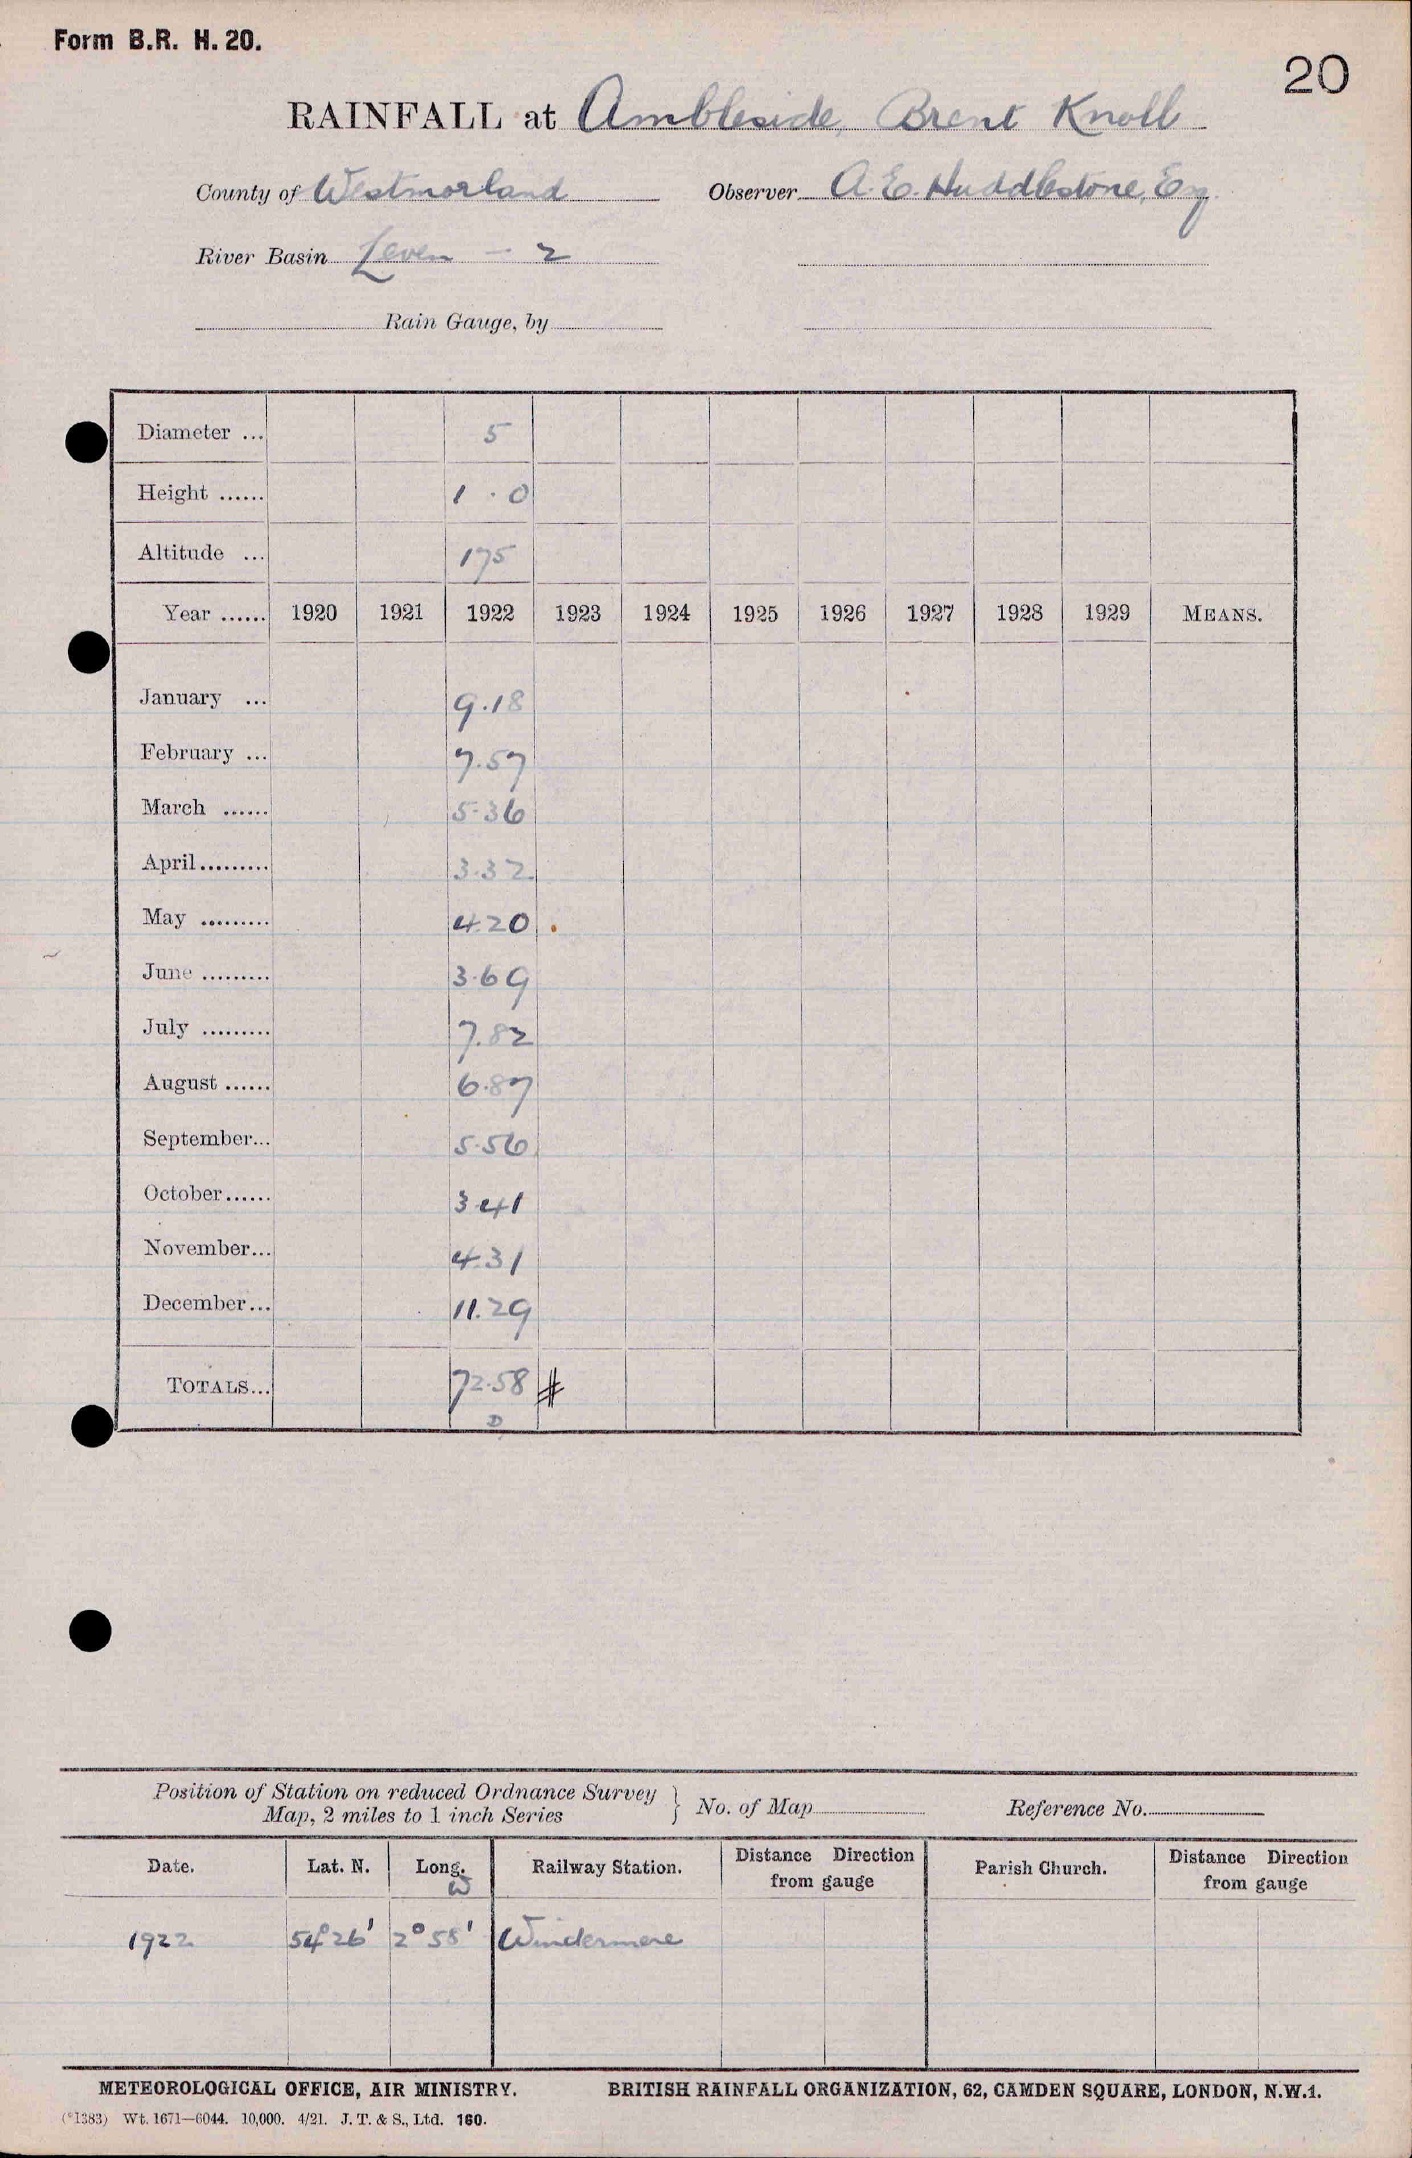 Form B.R. H. 20.
20
RAINFALL at Ambleside, Brent Knoll
County of Westmorland Observer A. E. Huddlestone, Esq
River Basin Leven — 2
Rain Gauge, by
Diameter ... 5
Height ...... 1 . 0
Altitude ... 175
Year ...... 1920 1921 1922 1923 1924 1925 1926 1927 1928 1929 MEANS.
January ... 9.18
February ... 7.57
March ...... 5.36
April......... 3.32
May ......... 4.20
June ......... 3.69
July ......... 7.82
August ...... 6.87
September... 5.56
October...... 3.41
November... 4.31
December... 11.29
TOTALS... 72.58 #
D
Position of Station on reduced Ordnance Survey
Map, 2 miles to 1 inch Series } No. of Map Reference No.
Date. Lat. N. Long. W Railway Station. Distance Direction from gauge Parish Church. Distance Direction from gauge
1922 54° 26' 2° 58' Windermere
METEOROLOGICAL OFFICE, AIR MINISTRY. BRITISH RAINFALL ORGANIZATION, 62, CAMDEN SQUARE, LONDON, N.W.1.
(*1383) Wt. 1671—6044. 10,000. 4/21. J. T. & S., Ltd. 160.